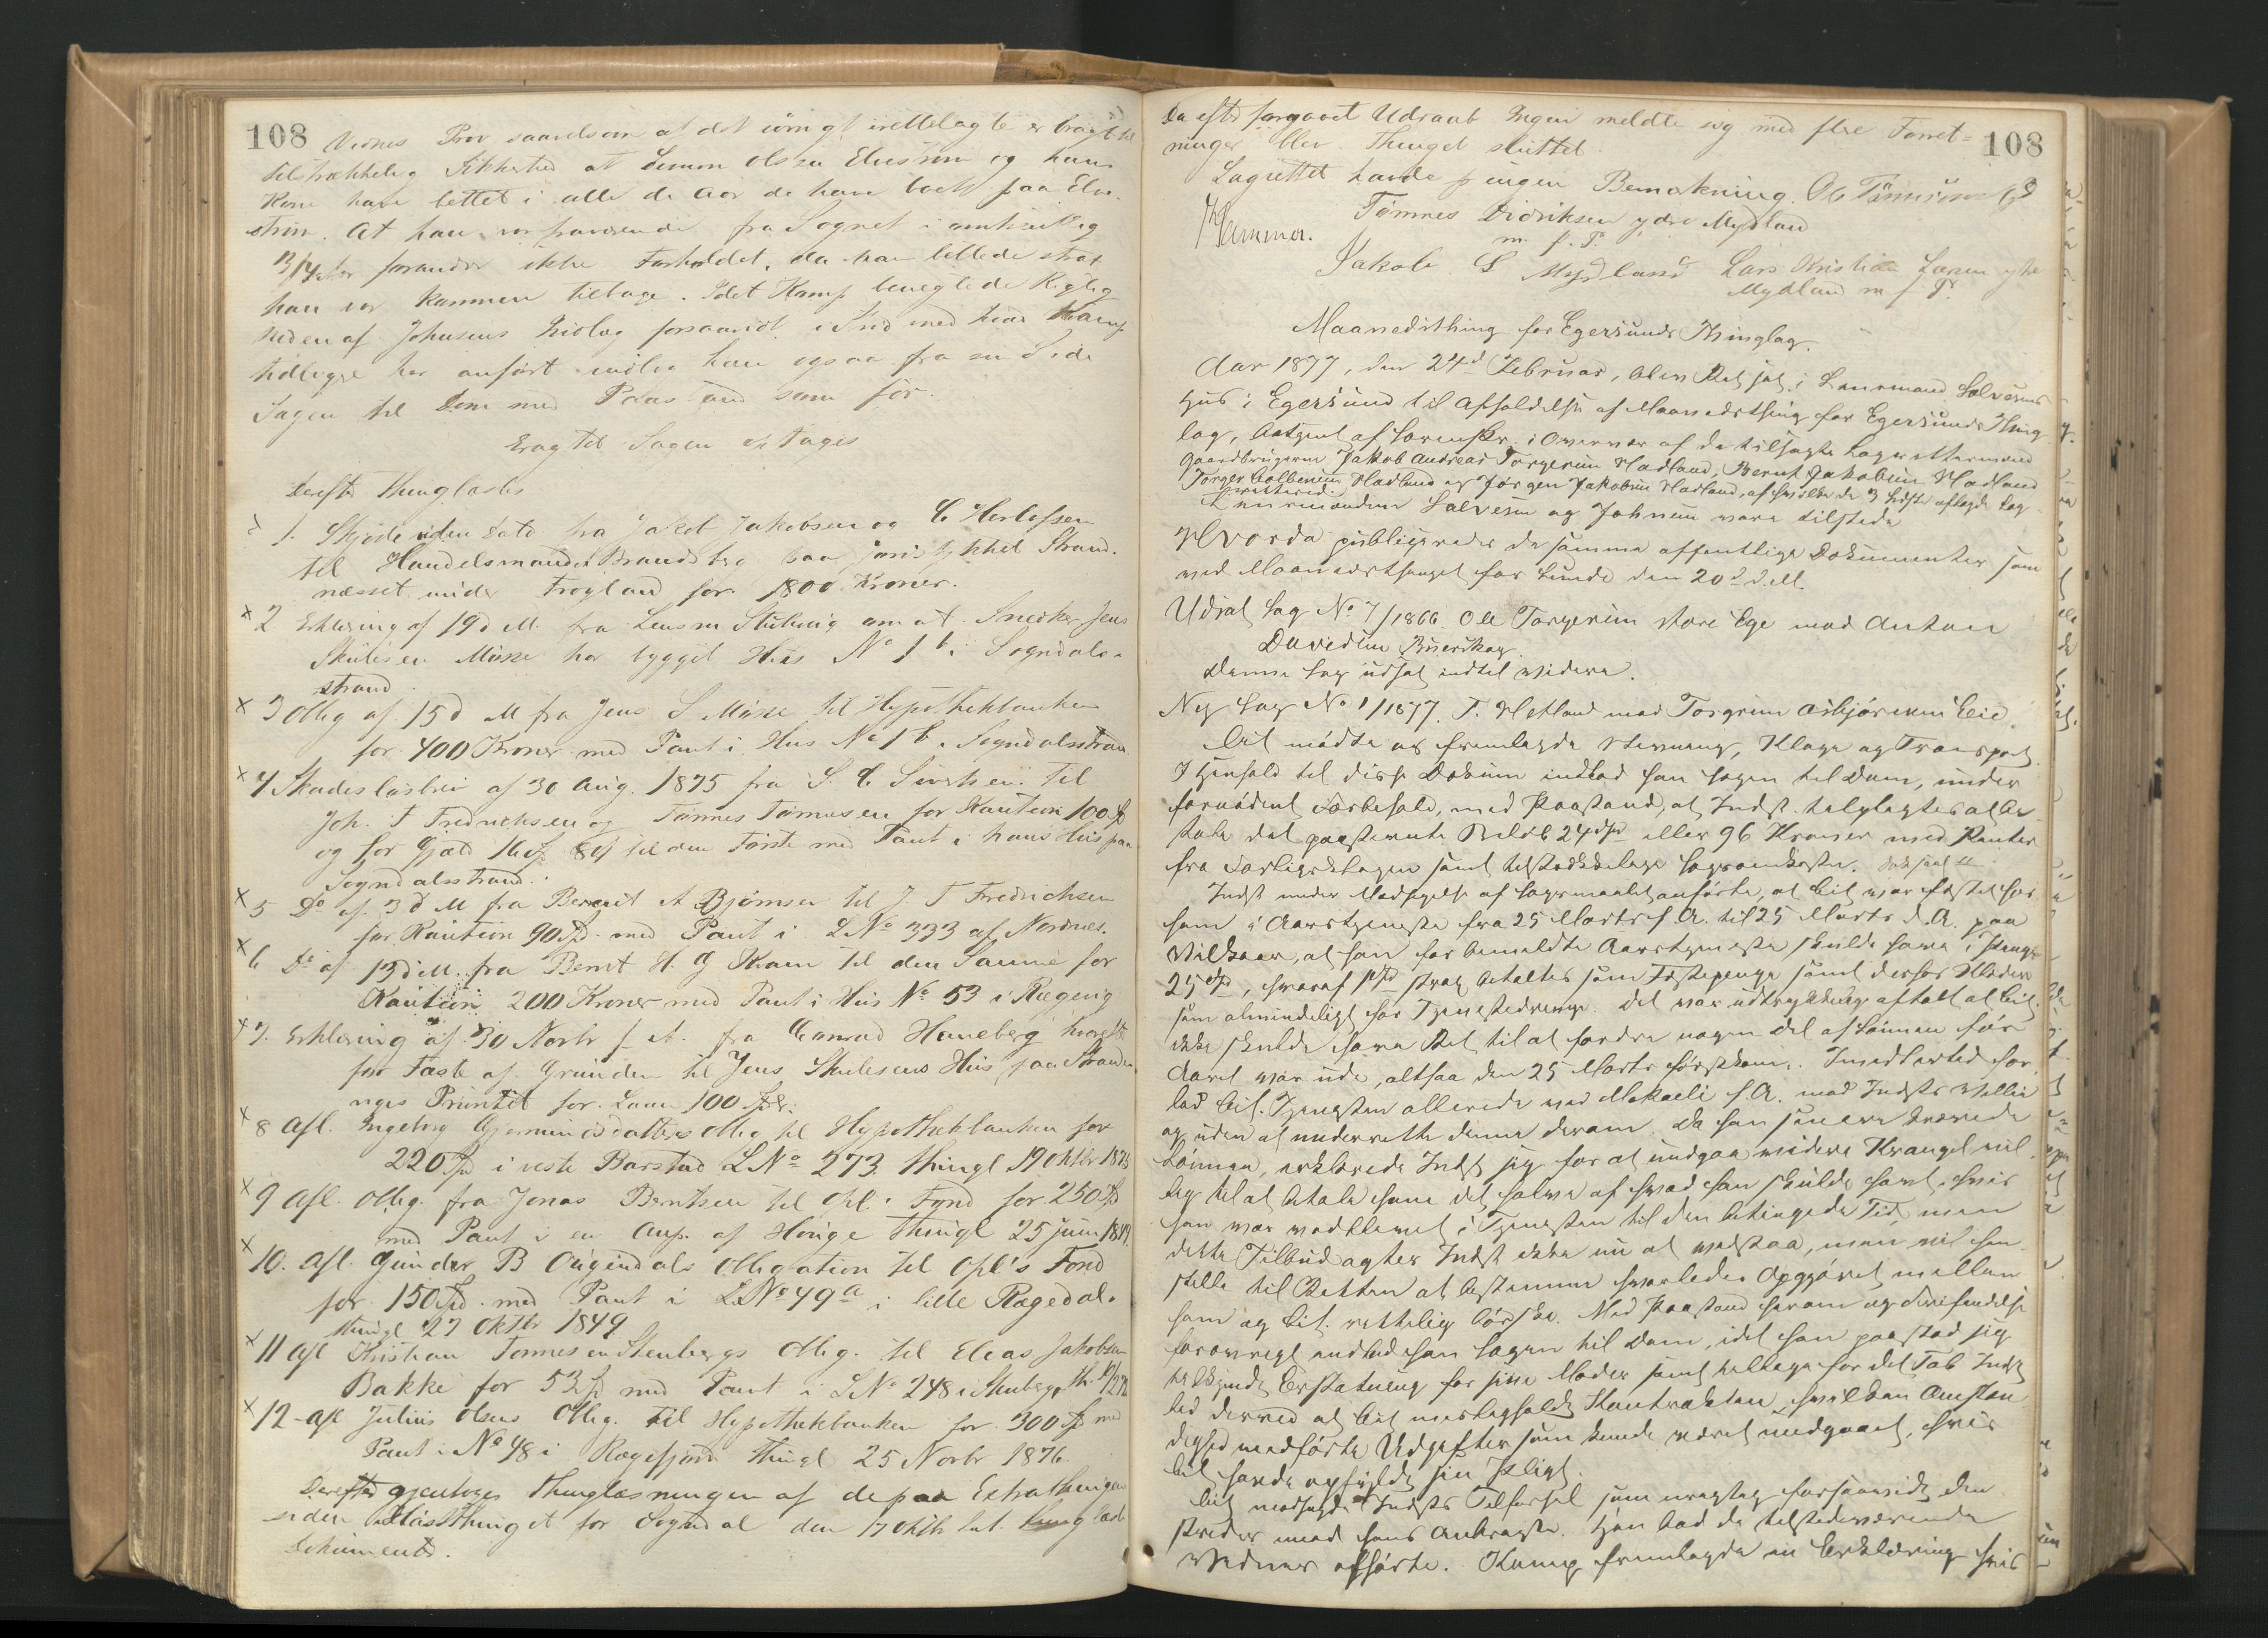 108
Vidnes Prov saavelsom at det iövrigt irettelagte er bragt til
tilstrækkelig Sikkerhed at Simon Olsen Elvestrøm og hans
Kone have lettet i alle de Aar de have boet paa Elve-
strøm. At han var fraværende fra Sognet i omtrent
forandrer ikke Forholdet, da han lettede strax
han var kommen tilbage. Idet Kamp benegtede Rigtig
heden af Johnsens Indlæg forsaavidt i Strid med hvad Kamp
tidligere har anført indlod han ogsaa fra sin Side
Sagen til Dom med Paastand som før.
Eragtet Sagen optages
Derefter Thinglæstes
1. Skjøde uden Dato fra Jakob Jakobsen og C Herlofsen
til Handelsmand Brandsberg paa Jordstykket Strand-
næsset under Frøyland for 1800 Kroner.
x 2 Erklæring af 19 d M. fra Lensm Stuhaug om at Snedker Jens
Skulesen Mosse har bygget Huus No 1 b i Sogndals-
strand
x 3 Oblig af 15 d M fra Jens S Mosse til Hypothekbanken
for 400 Kroner med Pant i Hus No 1 b. Sogndalsstrand
x 4 Skadesløsbrev af 30 Aug. 1875 fra S. C Sivertsen til
Joh. T Fredrichsen og Tønnes Tønnesen for Kaution 100 Spd
og for Gjæld 16 Spd 84 til den Første med Pant i hans Huus paa
Sogndalsstrand.
x 5 Do af 3 d M fra Berent A Bjørnsen til J T Fredrichsen
for Kaution 90 Spd. med Pant i LNo 333 af Nordnes.
x 6 Do af 13 d M. fra Bernt H. G Kram til den Samme for
Kaution 200 Kroner med Pant i Huus No 53 i Rægevig
x 7. Erklæring af 30 Novbr f. A. fra Conrad Haneberg
for Fæste af Grunden til Jens Skulesens Huus paa Strandens
for Laan 100 Spd.
x 8 Afl. Ingeborg Gjermundsdatters Oblig til Hypothekbanken for
220 Spd i vestre Barstad LNo 273 thingl 19 Oktbr 1875
x 9 Afl. Oblig. fra Jonas Berntsen til Opl. Fond for 250 Spd
med Pant i en Anp. af Houge thingl 25 Juni 1844.
x 10. Afl. Gunder B Ougendals Obligation til Opl's Fond
for 150 Spd. med Pant i LNo 49 a i lille Rægedal.
thingl 27 Oktbr 1849
x 11 Afl Kristian Tønnesen Stenbergs Oblig. til Elias Jakobsen
Bakke for 53 Spd med Pant i LNo 248 i Stenberg th.
x 12 - Afl Julius Olsens Oblig. til Hypothekbanken for 300 Spd med
Pant i No 48 i Rægefjord thingl 25 Novbr 1876.
Derefter gjentoges Thinglæsningen af de paa Extrathingene
siden Høstthinget for Sogndal den 17 Oktbr thinglæste
Dokumenter.
108
Da efter foregaaet Udraab Ingen meldte sig med flere Forret-
ninger blev Thinget sluttet.
Lagrettet havde ingen Bemærkning. Ole Tønnesen
Hammer. Tønnes Didriksen ydre Mydland
m. f. P.
Jakob S Mydland Lars Kristian Larsen ytre
Mydland m f P.
Maanedsthing for Egersunds Thinglag.
Aar 1877, den 24de Februar, blev Ret sat i Lensmand Salvesens
Hus i Egersund til Afholdelse af Maanedsthing for Egersunds Thing
lag, betjent af Sorenskr. i Overvær af de tilsagte Lagrettesmænd
Gaardbrugerne Jakob Andreas Torgersen Hadland, Bernt Jakobsen Hadland
Torger Kolbensen Hadland og Jørgen Jakobsen Hadland, af hvilke de 3 sidste aflagde Lag-
retteseed. Lensmændene Salvesen og Johnsen vare tilstede
Hvorda publiceredes de samme offentlige Dokumenter som
ved Maanedsthinget for Lunde den 20de d. M.
Udsat Sag No 7/1866. Ole Torgersen store Ege mod Anton
Davidsen Buerskog.
Denne Sag udsat indtil videre.
Ny Sag No 1/1877. T. Hetland mod Torgrim Asbjørnsen Eie.
Cit mødte og fremlagde Stevning, Klage og Transport.
I Henhold til disse Dokum indlod han Sagen til Dom, under
fornødent Forbehold, med Paastand, at Indst. tilpligtes at be-
tale det paastevnte Beløb 24 Spd eller 96 Kroner med Renter
fra Forligsklagen samt tilstrækkelige Sagsomkostn.
Indst under Modsigelse af Søgsmaalet anførte, at Cit var fæstet hos
ham i Aarstjeneste fra 25 Marts f. A. til 25 Marts d. A. paa
Vilkaar, at han for bemeldte Aarstjeneste skulde have i Penge
25 Spd, hvoraf 1 Spd strax betaltes som Fæstepenge samt derhos Klæder
som almindeligt for Tjenestedrenge. Det var udtrykkelig aftalt at Cit
ikke skulde have Ret til at fordre nogen Del af Lønnen før
Aaret var ude, altsaa den 25 Marts førstkom. Imidlertid for-
lod Cit. Tjenesten allerede ved Mikaeli f. A. mod Indsts Villie
og uden at underrette denne derom. Da han senere krævede
Lønnen, erklærede Indst sig for at undgaa videre Krangel vil-
lig til at betale ham det halve af hvad han skulde havt, hvis
han var vedbleven i Tjenesten til den betingede Tid, men
dette Tilbud agter Indst ikke nu at vedstaa, men vil hen-
stille til Retten at bestemme hvorledes Opgjøret mellem
ham og Cit. rettelig bør ske. Med Paastand herom og Frifindelse
forøvrigt indlod han Sagen til Dom, idet han paastod sig
tilkjendt Erstatning for sine Møder samt tillige for det Tab Indst
led derved at Cit misligholdt Kontrakten, hvilken Omstæn-
dighed medførte Udgifter som kunde været undgaaet, hvis
Cit havde opfyldt sin Pligt.
Cit modsagde Indsts Tilførsel som urigtig forsaavidt den
strider mod hans Anbragte. Han bad de tilstedeværende
Vidner afhørte. Kamp fremlagde en Erklæring hvis